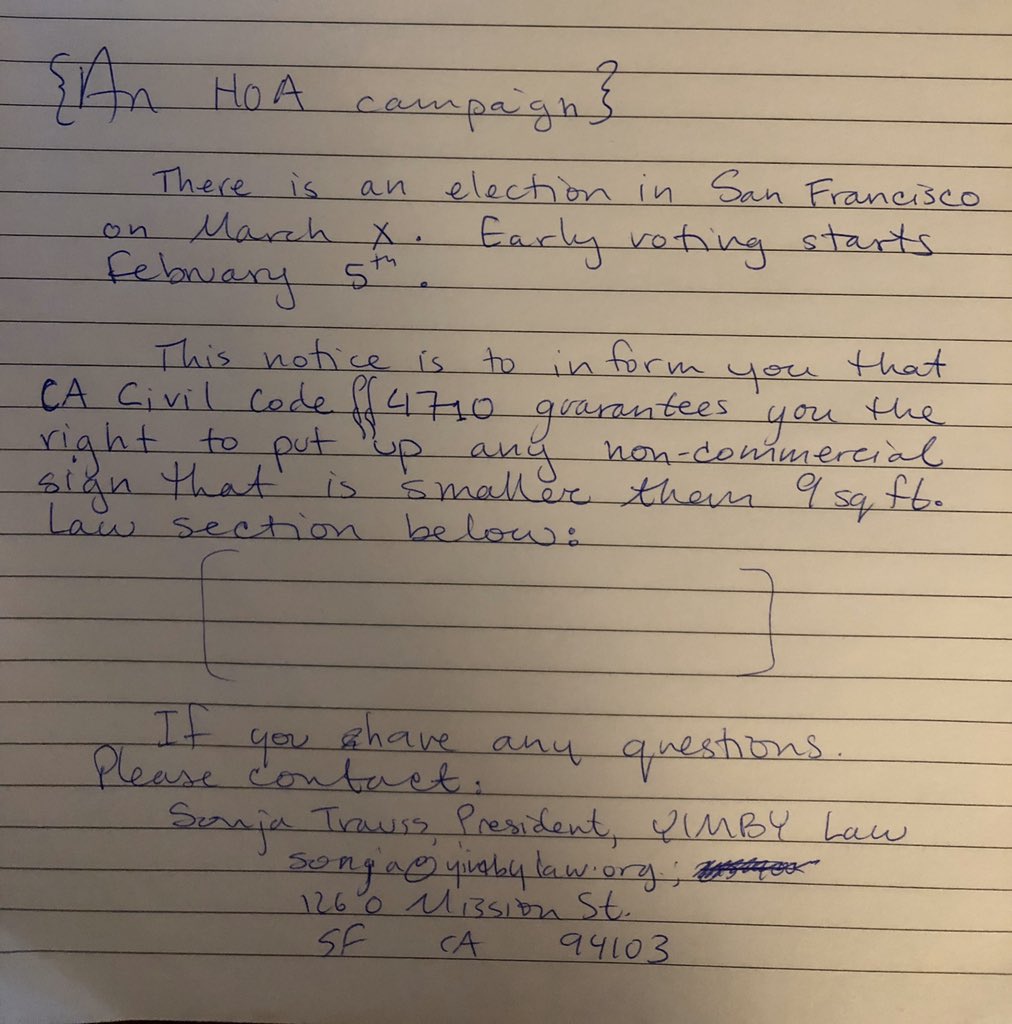 {An HOA campaign}
There is an election in San Francisco
on March X. Early voting starts
February 5th.
This notice is to inform you that
CA Civil Code §§4710 guarantees you the
right to put up any non-commercial
sign that is smaller them 9 sq ft.
Law section below:
[ ]
If you have any questions.
Please contact:
Sonja Trauss, President, YIMBY Law
songa@yimbylaw.org;
1260 Mission St.
SF CA 94103